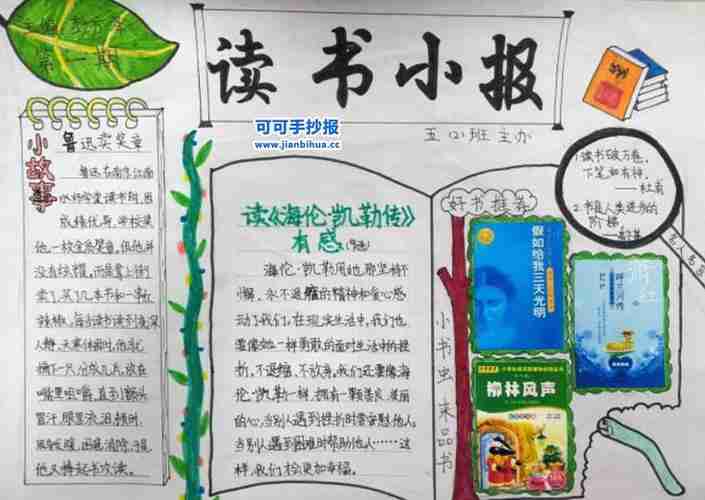 第一期
读书小报
可可手抄报
www.jianbihua.cc
五(2)班主办
小故事
鲁迅卖奖章
鲁迅在南京江南
水师学堂读书期,因
成绩优异,学校奖
他一枚金质奖章,但他并
没有炫耀,而是拿上街
卖了,买了几本书和一串红
辣椒,每当读书读到夜深
人静、天寒体
摘下一只,分成几片,放在
嘴里咀嚼,直到额头
冒汗,眼里流泪,顿时,
周身发暖,困意消除,于是
他又捧起书攻读。
读《海伦·凯勒传》
有感
海伦·凯勒用她那坚持不
懈、永不退缩的精神和爱心感
动了我们,在现实生活中,我们也
要像她一样勇敢的面对生活中的挫
折,不退缩,不放弃,我们还要像海
伦·凯勒一样,拥有一颗善良、美丽
的心,当别人遇到挫折时常安慰他人,
当别人遇到困难时帮助他人……这
样,我们将更加幸福。
好书推荐
假如给我三天光明
柳林风声
小书虫来品书
1.读书破万卷,
下笔如有神。
——杜甫
2.书是人类进步的
阶梯
——高尔基
名人名言